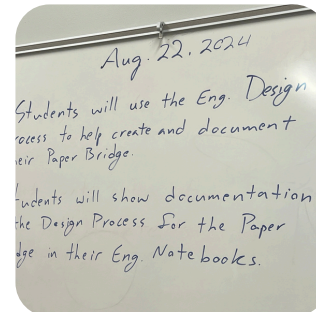 Aug. 22, 2024
Students will use the Eng. Design
rocess to help create and document
eir Paper Bridge.
tudents will show documentation
the Design Process for the Paper
dge in their Eng. Notebooks.